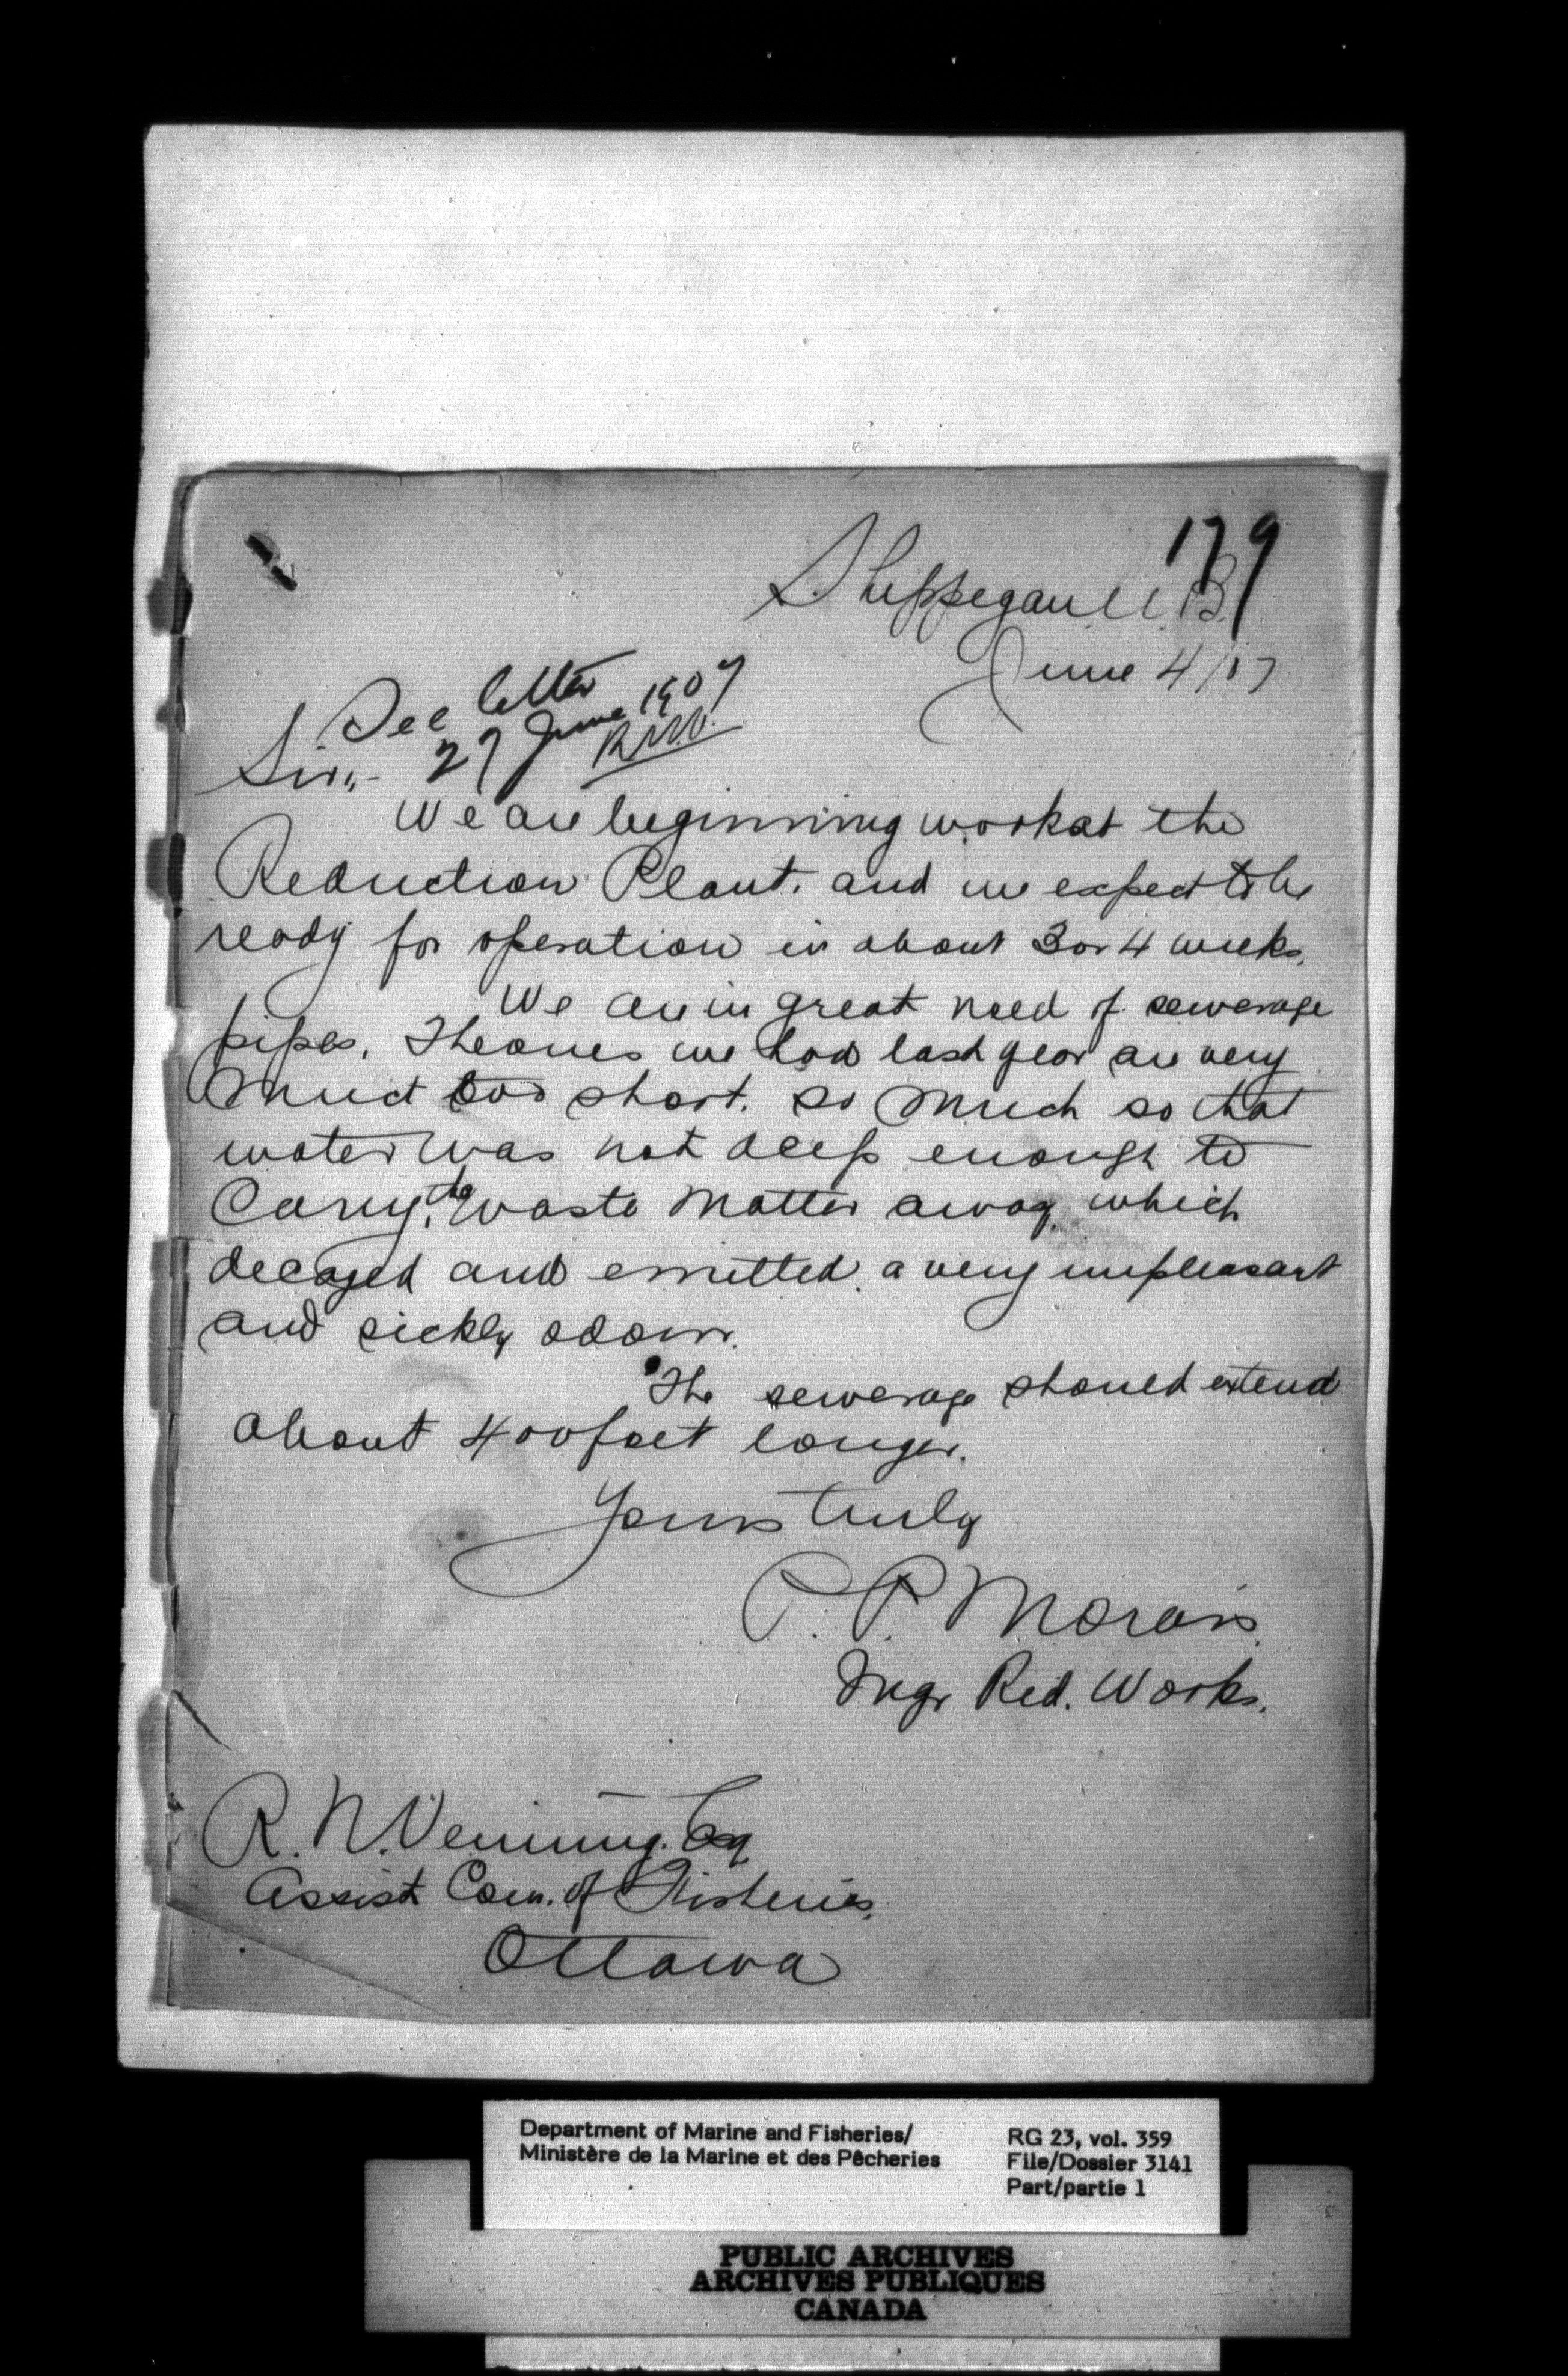 179
Shippegan, N.B.
June 4/07
See letter
27 June 1907
Sir,,-
We are beginning work at the
Reduction Plant. and we expect to be
ready for operation in about 3 or 4 weeks.
We are in great need of sewerage
pipes. The ones we had last year are very
much too short. so much so that
water was not deep enough to
Carry the waste matter away which
decayed and emitted a very unpleasant
and sickly odour.
The sewerage should extend
about 400 feet longer.
Yours truly
P. P. Morais
Mgr Red. Works.
R. N. Venning. Esq
Assist Com. of Fisheries.
Ottawa
Department of Marine and Fisheries/
Ministère de la Marine et des Pêcheries
RG 23, vol. 359
File/Dossier 3141
Part/partie 1
PUBLIC ARCHIVES
ARCHIVES PUBLIQUES
CANADA